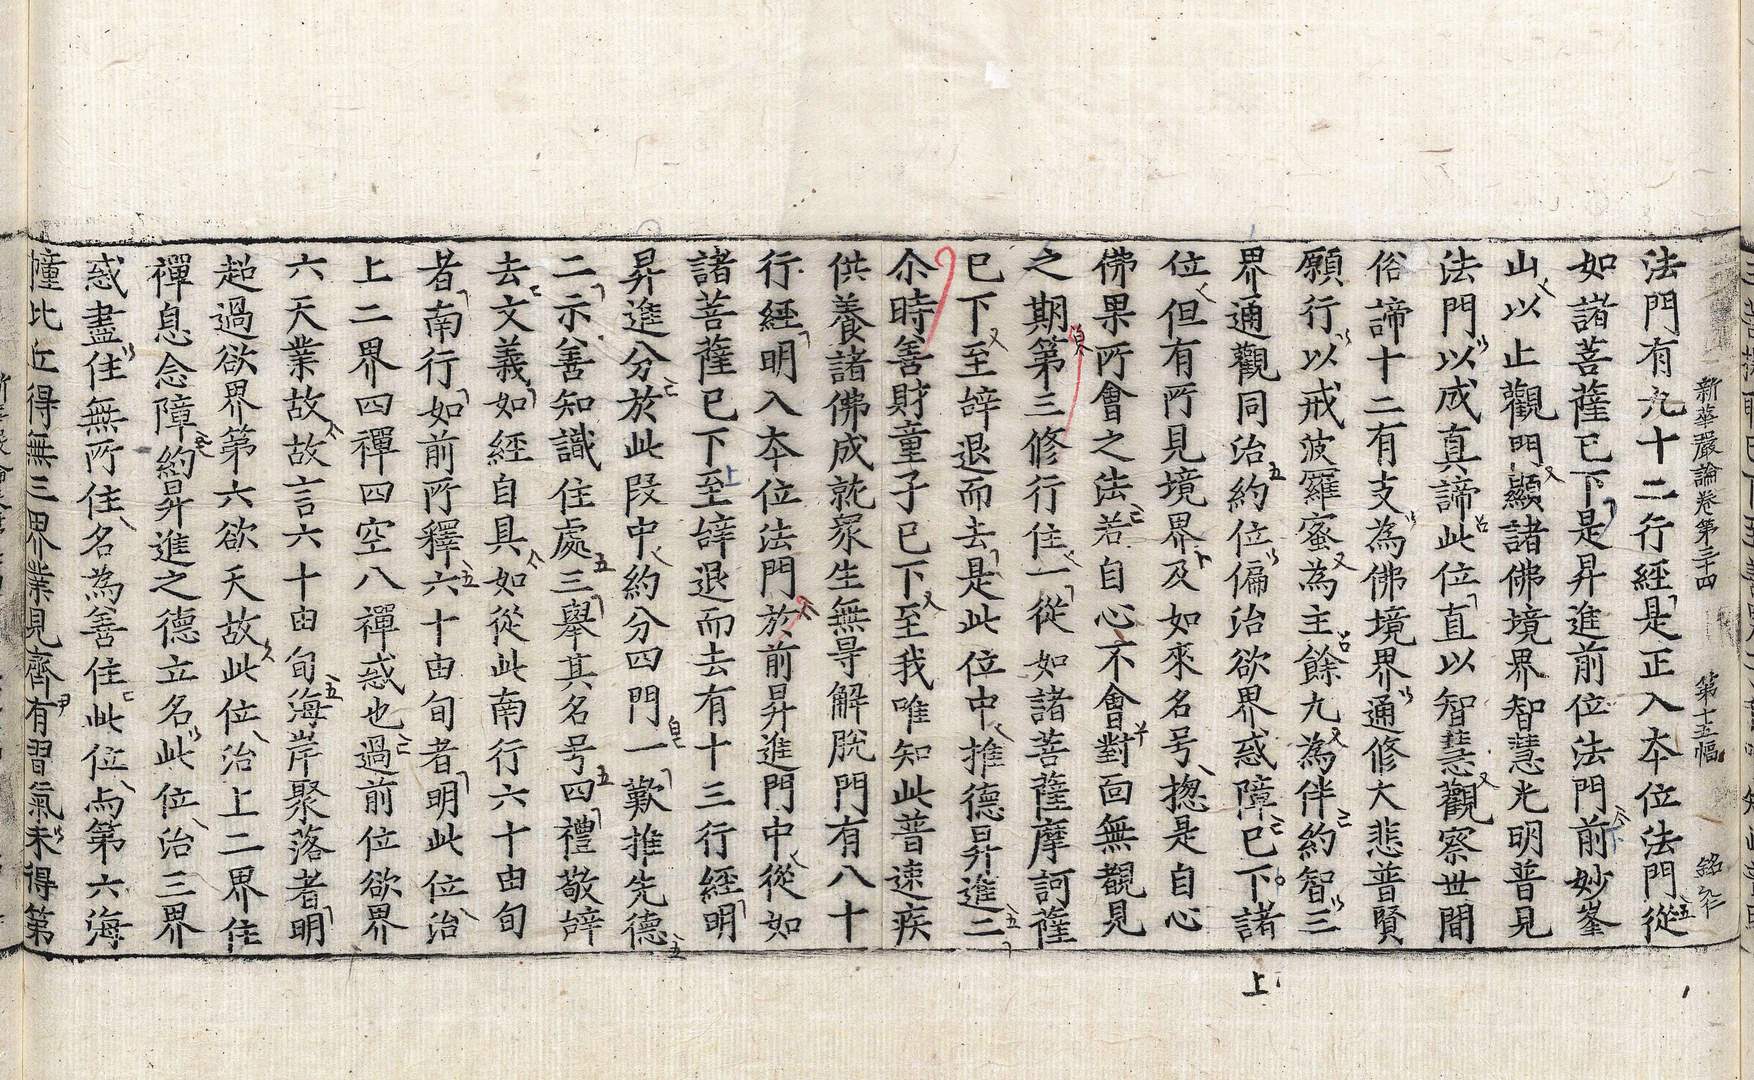 新華嚴論卷第三十四 第十五幅 銘仁
法門有九十二行經是正入夲位法門從
如諸菩薩已下是昇進前位法門前妙峯
山以止觀門顯諸佛境界智慧光明普見
法門以成真諦此位直以智慧觀察世間
俗諦十二有支為佛境界通修大悲普賢
願行以戒波羅蜜為主餘九為伴約智三
界通觀同治約位偏治欲界惑障已下諸
位但有所見境界及如來名号揔是自心
佛果所會之法若自心不會對面無覩見
之期第三修行住一從如諸菩薩摩訶薩
已下至辝退而去是此位中推德昇進二
尒時善財童子已下至我唯知此普速疾
供養諸佛成就衆生無㝵解脫門有八十
行經明入夲位法門於前昇進門中從如
諸菩薩已下至辝退而去有十三行經明
昇進分於此段中約分四門一歎推先德
二示善知識住處三舉其名号四禮敬辝
去文義如經自具如從此南行六十由旬
者南行如前所釋六十由旬者明此位治
上二界四禪四空八禪惑也過前位欲界
六天業故故言六十由旬海岸聚落者明
超過欲界第六欲天故此位治上二界住
禪息念障約昇進之德立名此位治三界
惑盡住無所住名為善住此位与第六海
幢比丘得無三界業見齊有習氣未得第
上